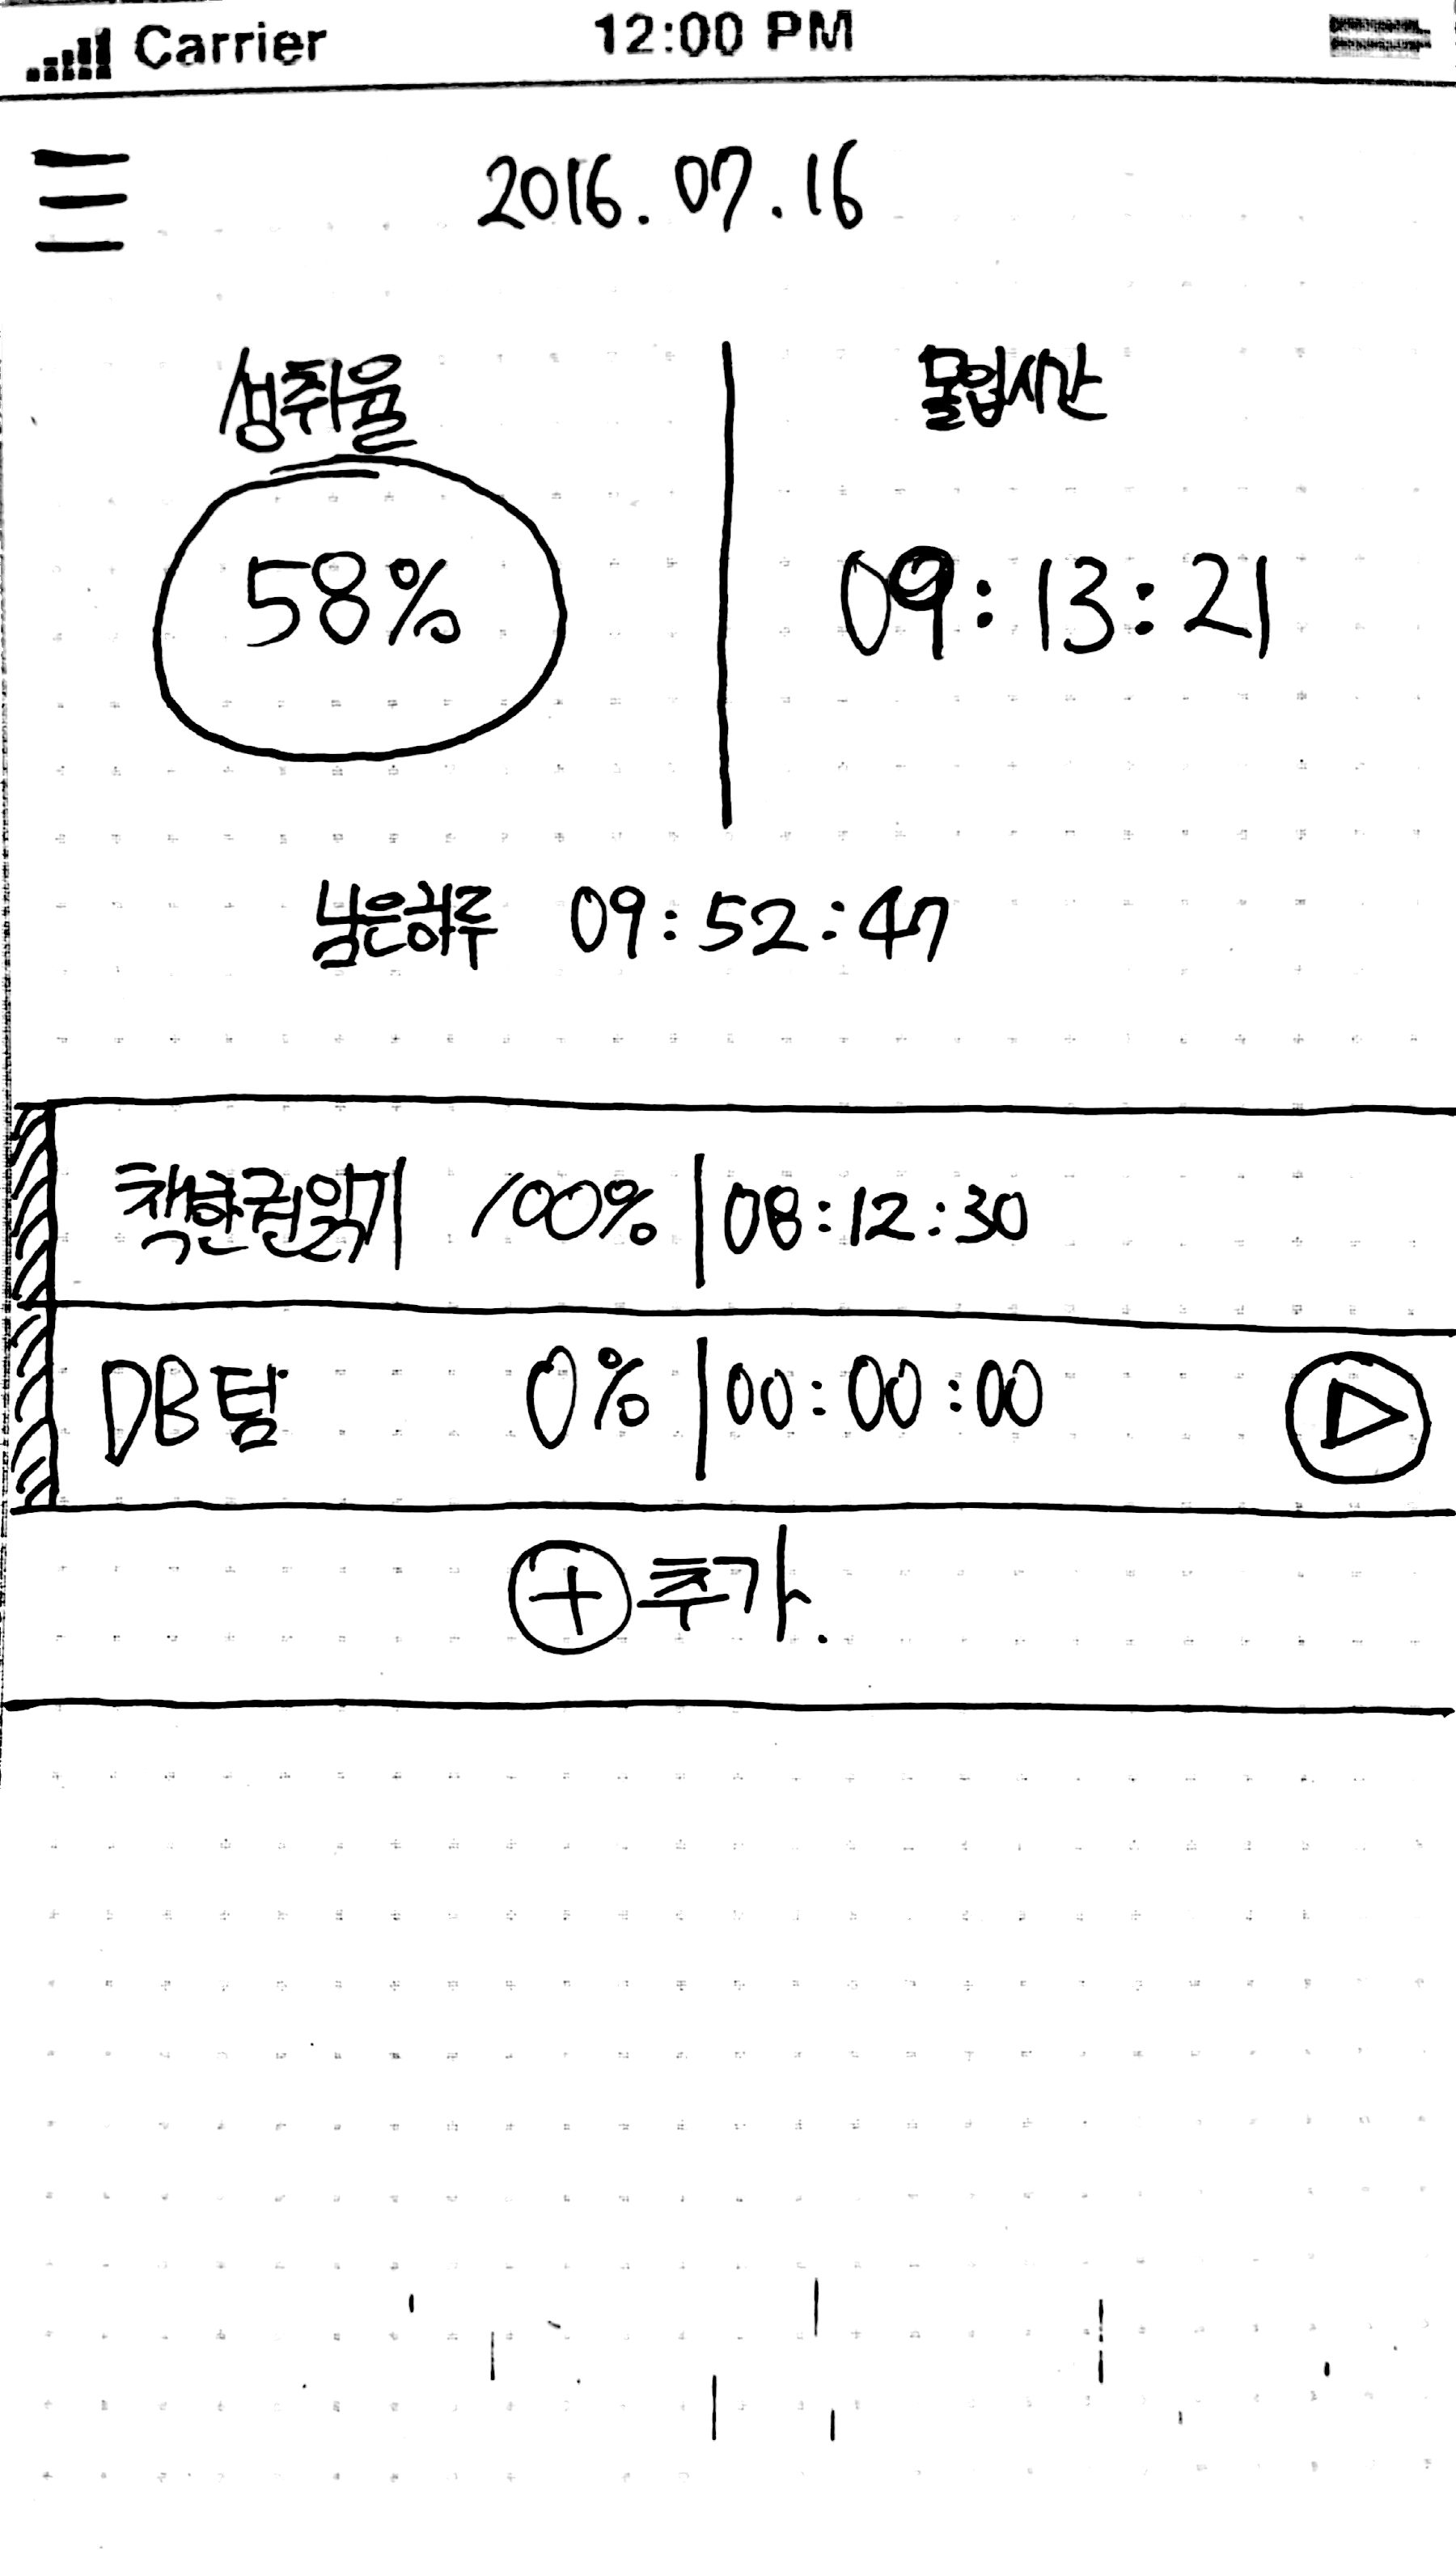 Carrier 12:00 PM
2016.07.16
성취율 몰입시간
58% 09:13:21
남은하루 09:52:47
책한권읽기 100% | 08:12:30
DB텀 0% | 00:00:00
+ 추가.